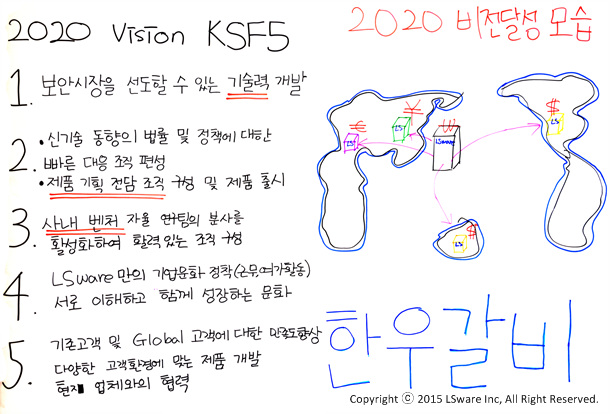 2020 Vision KSF5
1. 보안시장을 선도할 수 있는 기술력 개발
2. • 신기술 동향의 법률 및 정책에 대한
빠른 대응 조직 편성
• 제품 기획 전담 조직 구성 및 제품 출시
3. 사내 벤처 자율 연구팀의 분사를
활성화하여 활력있는 조직 구성
4. LSware만의 기업문화 정착(근무여가활동)
서로 이해하고 함께 성장하는 문화
5. 기존고객 및 Global 고객에 대한 만족도향상
다양한 고객환경에 맞는 제품 개발
현지 업체와의 협력
2020 비전달성 모습
€
¥
₩
$
LS
LS
LSware
LS
$
LS
한우갈비
Copyright ⓒ 2015 LSware Inc, All Right Reserved.